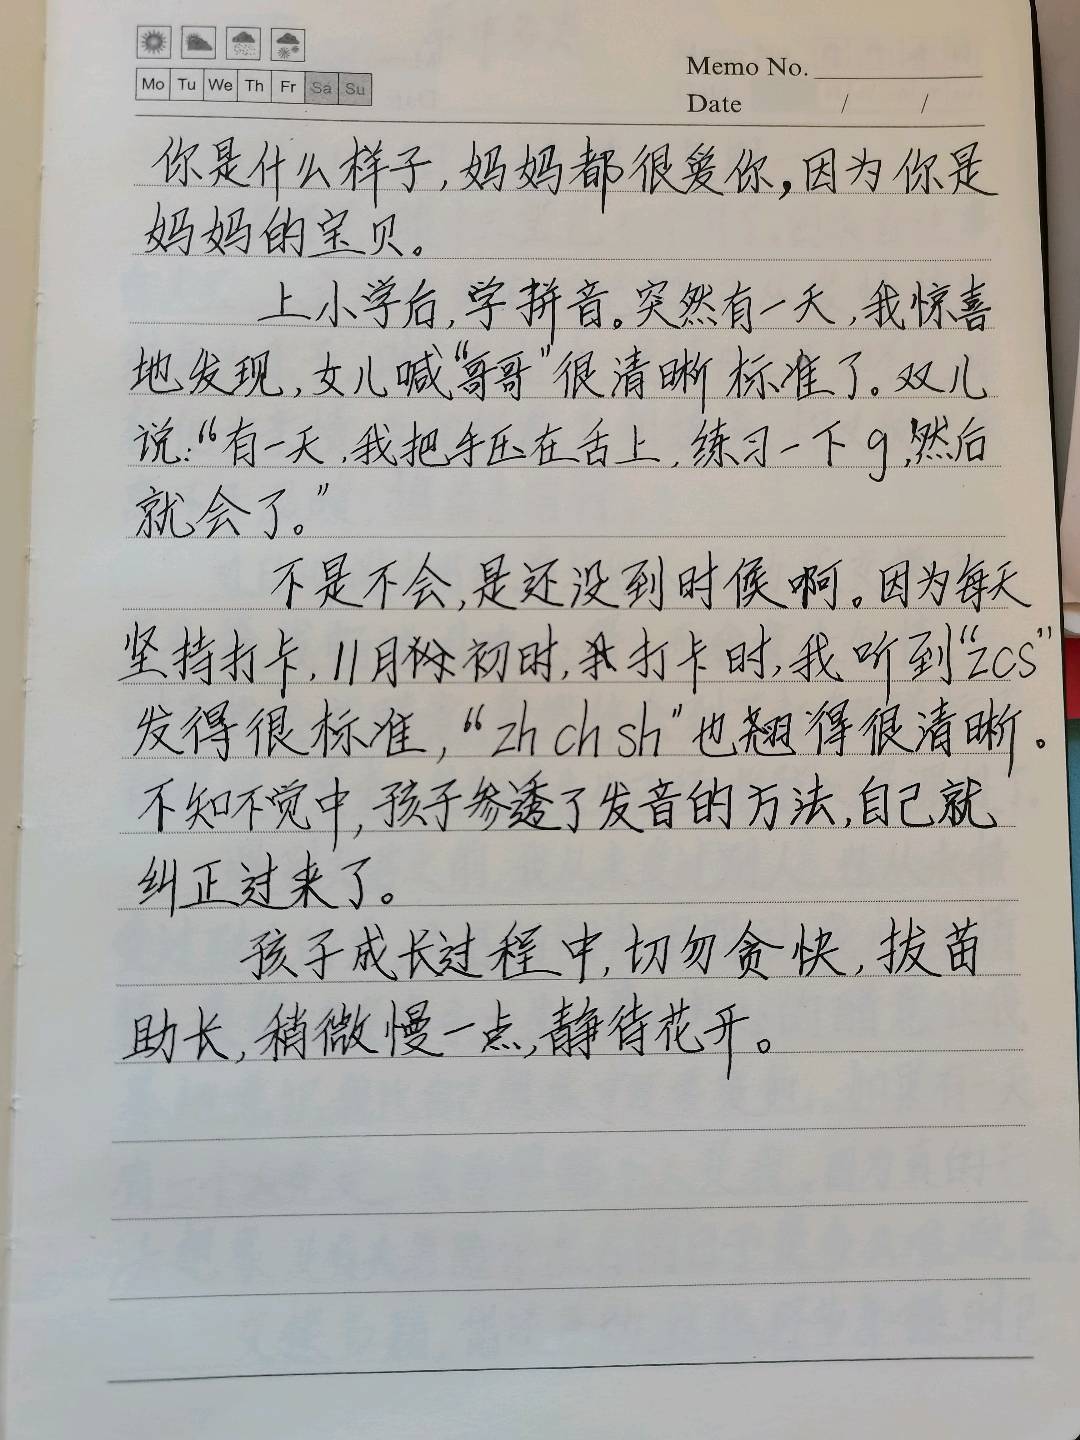 Mo Tu We Th Fr Sa Su
Memo No.
Date / /
你是什么样子,妈妈都很爱你,因为你是
妈妈的宝贝。
上小学后,学拼音。突然有一天,我惊喜
地发现,女儿喊“哥哥”很清晰标准了。双儿
说:“有一天,我把手压在舌上,练习一下g,然后
就会了。”
不是不会,是还没到时候啊。因为每天
坚持打卡,11月份初时,打卡时,我听到“zcs”
发得很标准,“zh ch sh”也翘得很清晰。
不知不觉中,孩子参透了发音的方法,自己就
纠正过来了。
孩子成长过程中,切勿贪快,拔苗
助长,稍微慢一点,静待花开。